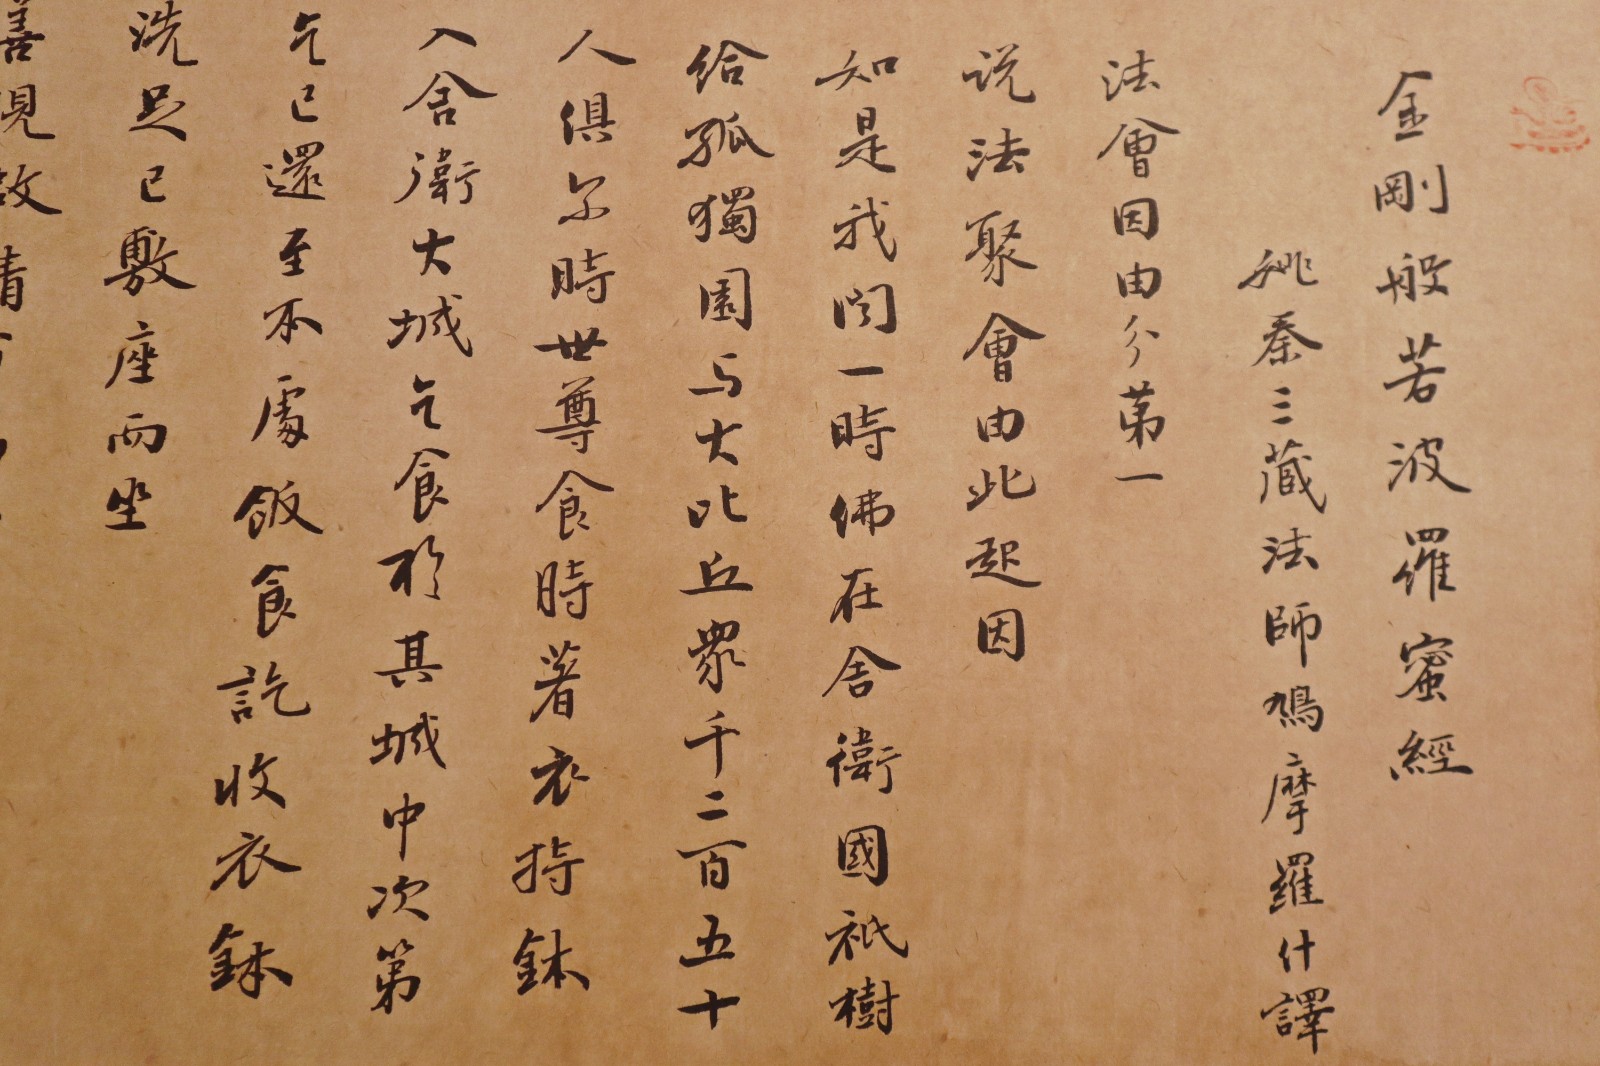 金剛般若波羅蜜經
姚秦三藏法師鳩摩羅什譯
法會因由分第一
说法聚會由此起因
如是我闻一時佛在舍衛國祇樹
给孤獨園与大比丘眾千二百五十
人俱尔時世尊食時著衣持鉢
入舍衛大城乞食於其城中次第
乞已還至本處飯食訖收衣鉢
洗足已敷座而坐
善現故請